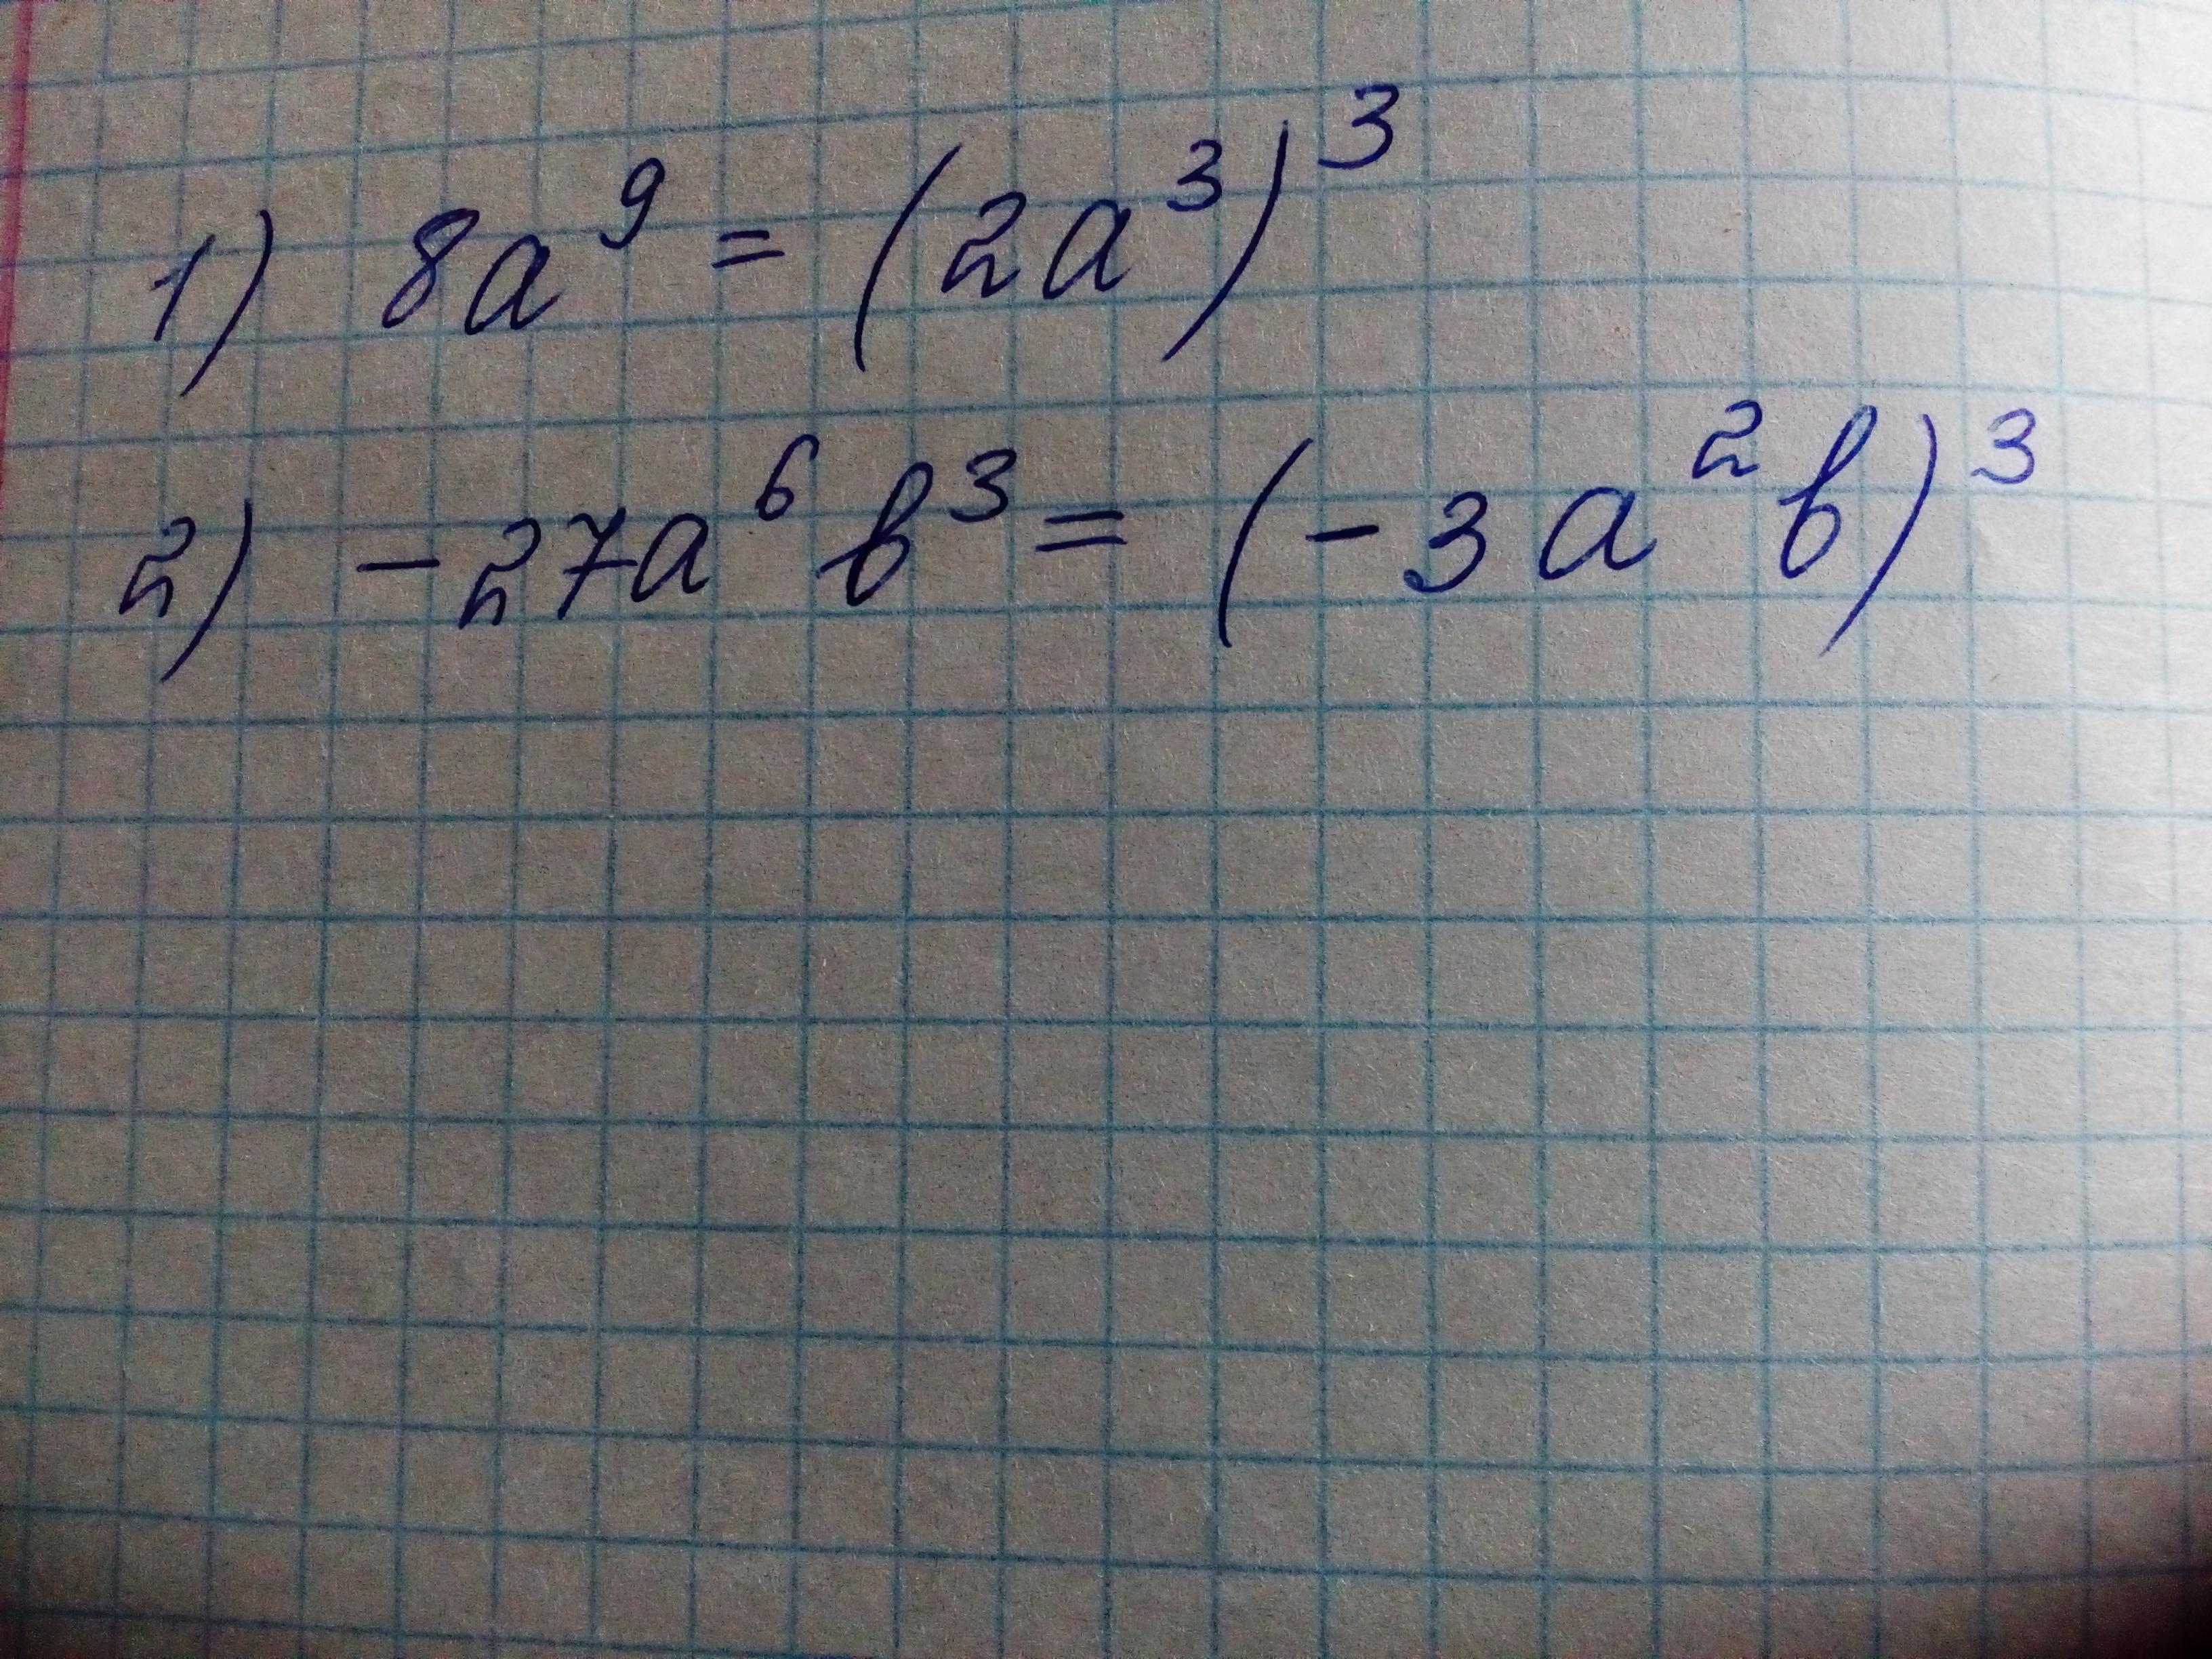 1) 8a⁹ = (2a³)³
2) -27a⁶b³ = (-3a²b)³